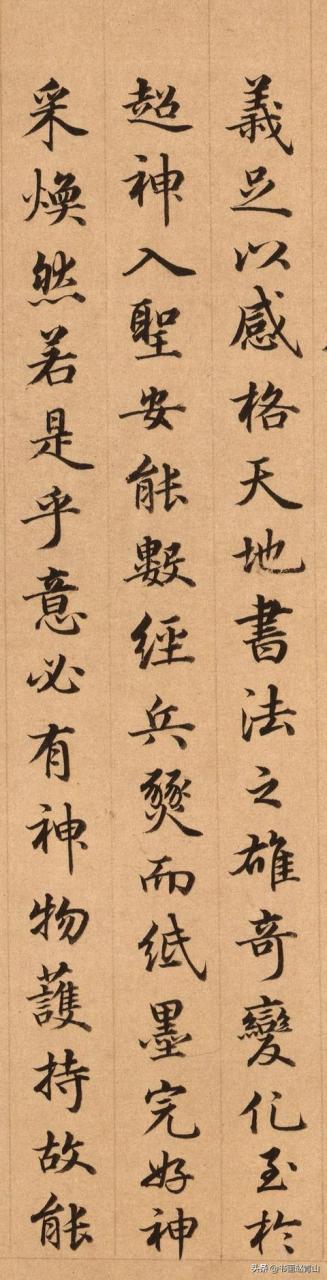 義足以感格天地書法之雄奇變化至於
超神入聖安能數經兵燹而紙墨完好神
采煥然若是乎意必有神物護持故能
头条@书画赵青山